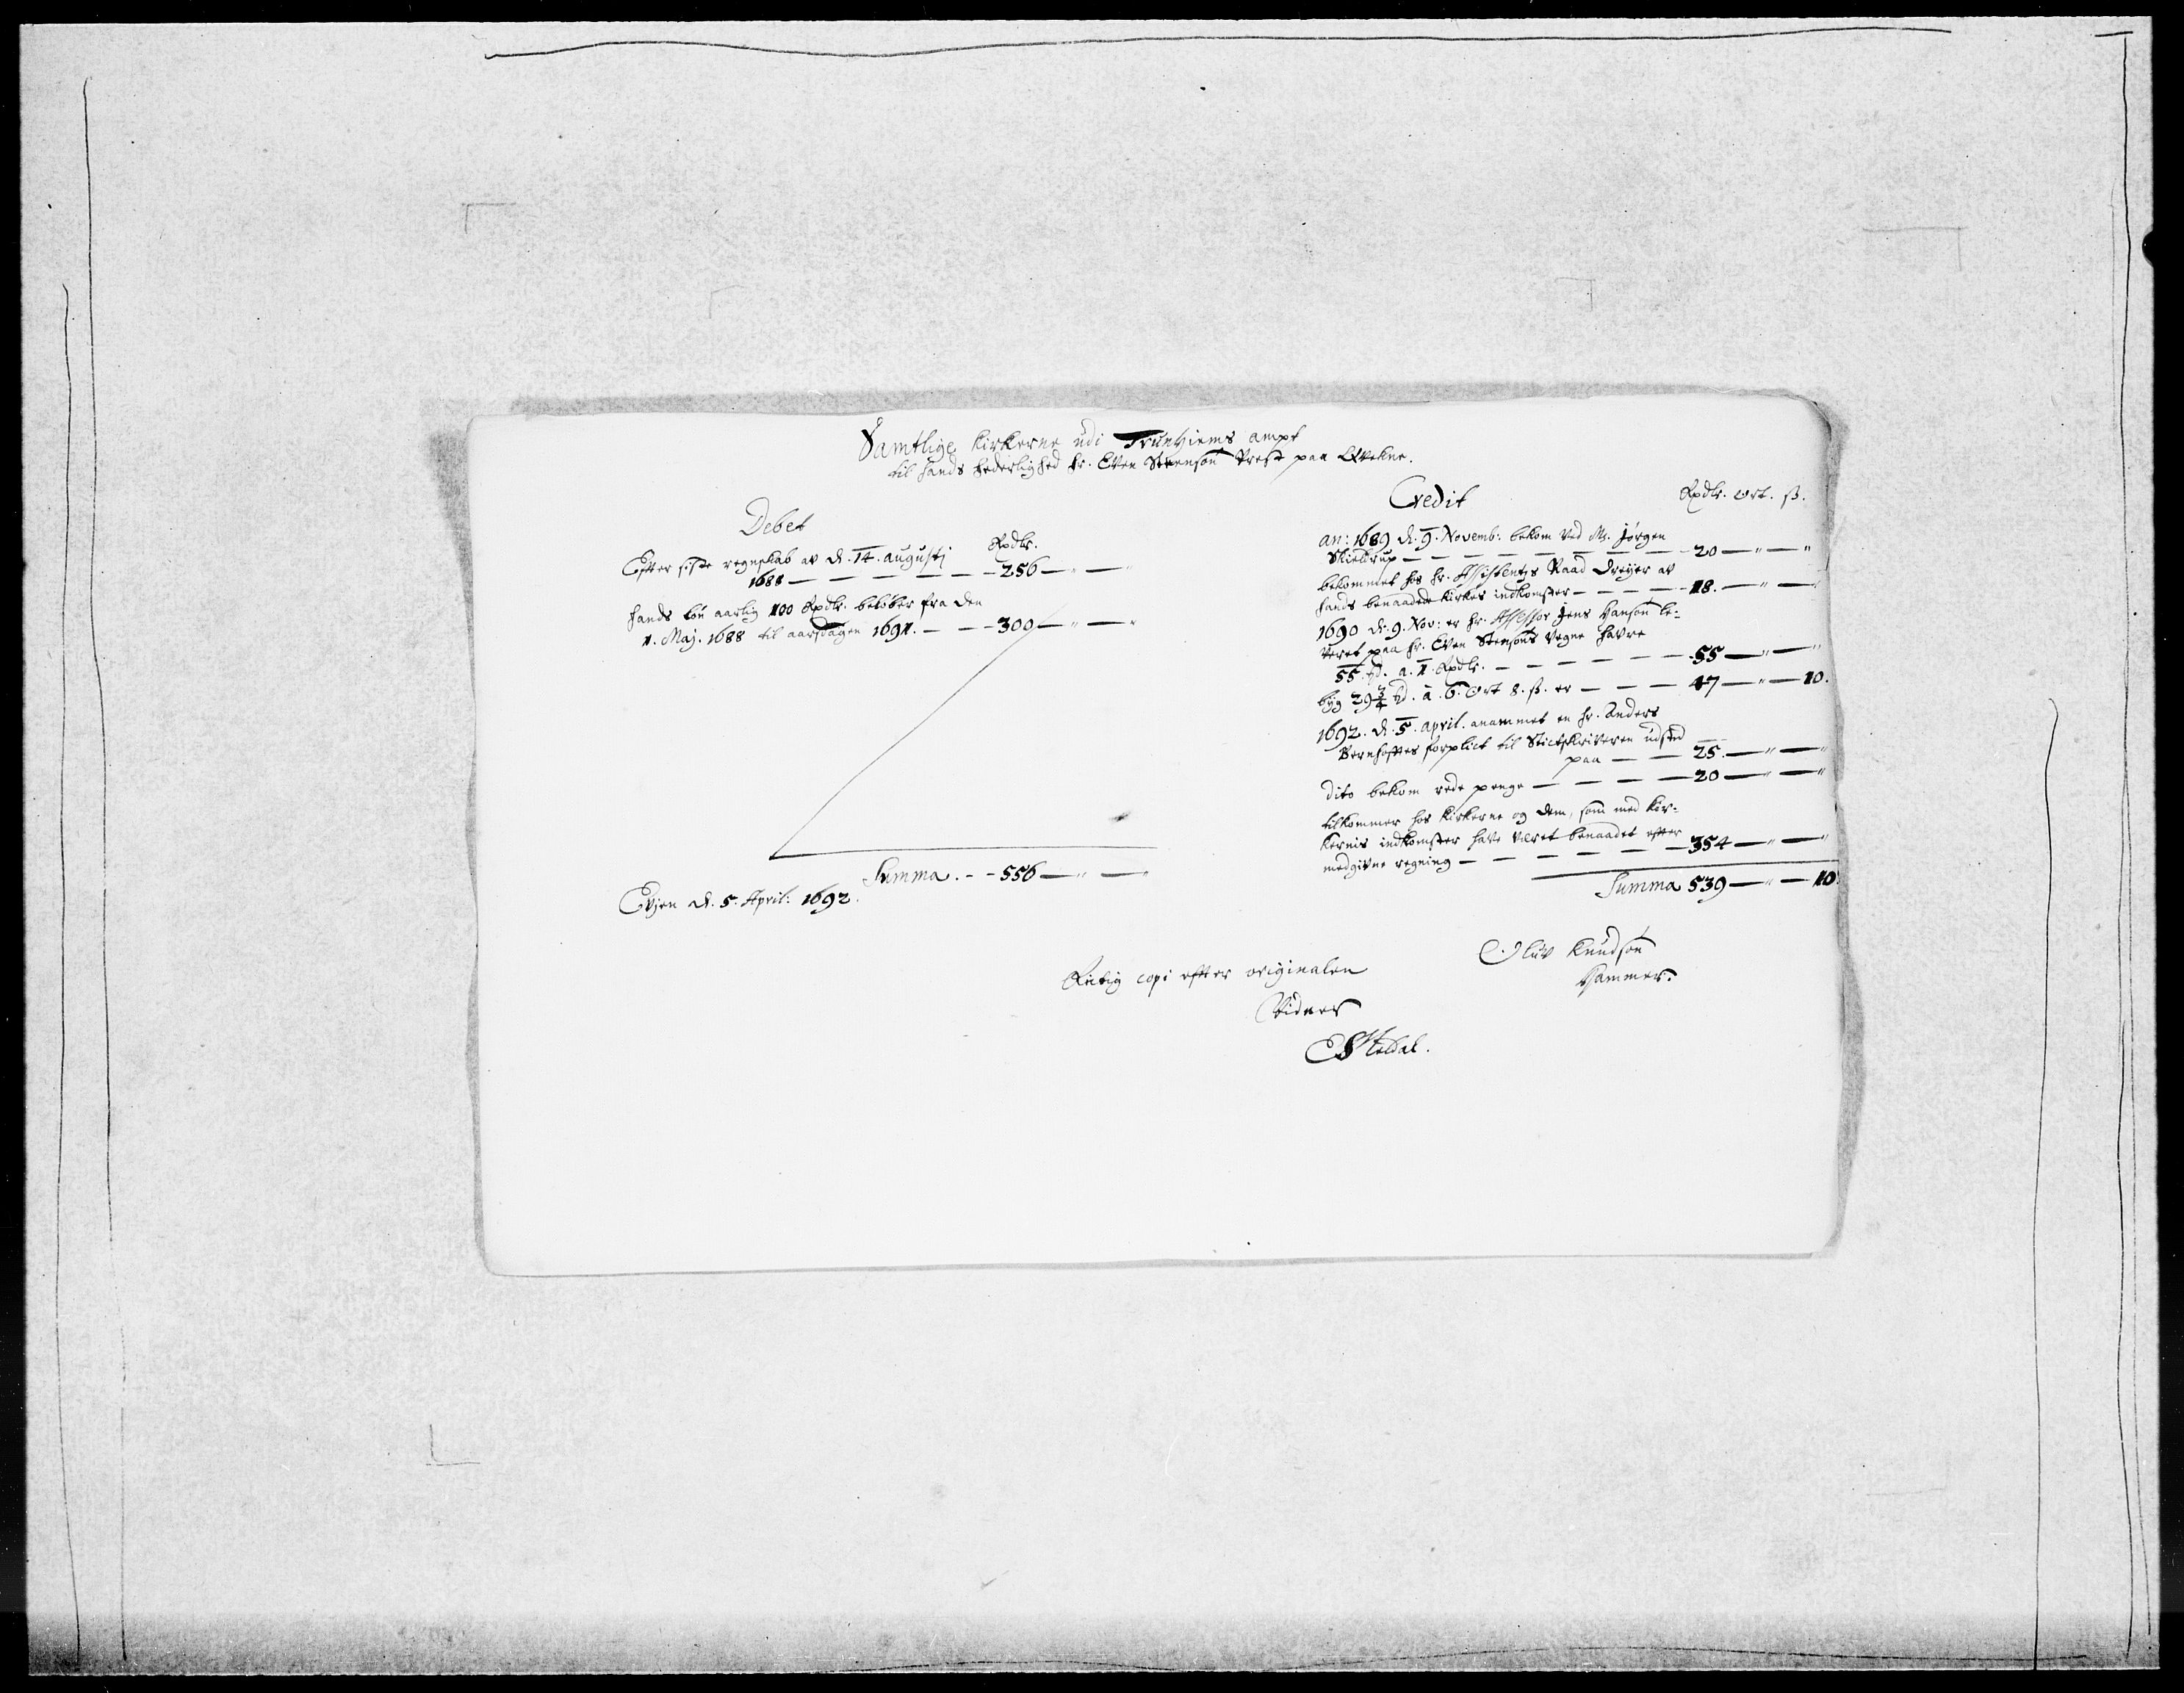 Samtlige kirkerne udi Trunhiems ampt
til hands hederlighed hr. Even Steensøn Prest paa Qvekne.
Debet
Rpdlr.
Efter siste regnskab av d. 14. augustj
1688 — — — — — — 256 — " — "
hands løn aarlig 100 Rpdlr. beløber fra den
1. Maj. 1688 til aarsdagen 1691. — — — 300 — " — "
Summa. - - 556 — " — "
Evjen d. 5. April: 1692.
Credit
Rpdlr. ort. ß.
an: 1689 d. 9. Novemb: bekom ved Mr. Jørgen
Skieldrup — — — — — — 20 — " — "
bekommet hos hr. Assistentzs Raad Dreyer av
hands benaadede kirkes indkomster — — — — 18. — " — "
1690 d. 9. Nov: er hr. Assessor Jens Hansøn le-
veret paa hr. Even Stensøns vegne havre
55 td. a. 1. Rpdlr. — — — — — 55 — " — "
byg 29 3/4 td. à 6. Ort 8. ß. er — — — 47 — " — 10.
1692. d. 5. april. anammet en hr. Anders
Bernhoftes forplict til Stictskriveren udsted
paa — — 25. — " — "
dito bekom rede penge — — — — 20 — " — "
tilkommer hos kirkerne og dem, som med kir-
kernis indkomster have været benaadet efter
medgivne regning — — — — — — 354 — " — "
Summa 539 — " — 10.
Oluv Knudsøn
Hammer.
Rictig copi efter originalen
Vidner
E S Meldal.